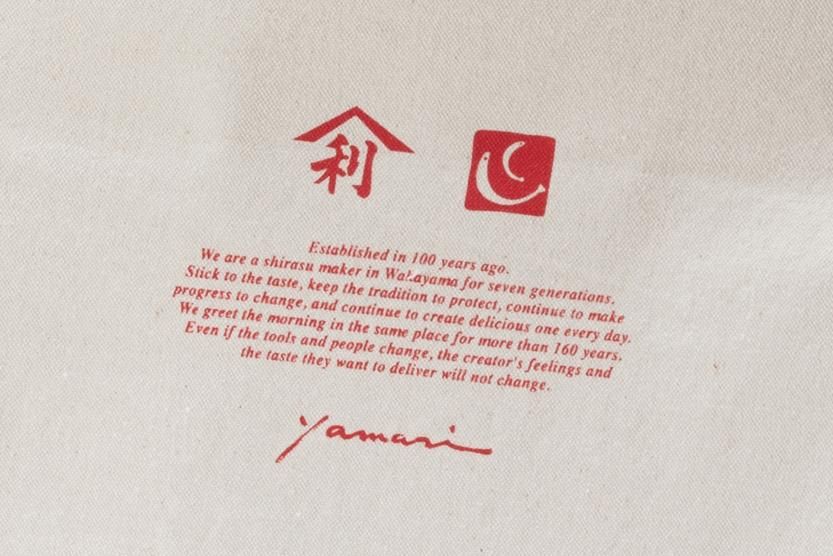 利
Established in 100 years ago.
We are a shirasu maker in Wakayama for seven generations.
Stick to the taste, keep the tradition to protect, continue to make
progress to change, and continue to create delicious one every day.
We greet the morning in the same place for more than 160 years.
Even if the tools and people change, the creator's feelings and
the taste they want to deliver will not change.
yamari